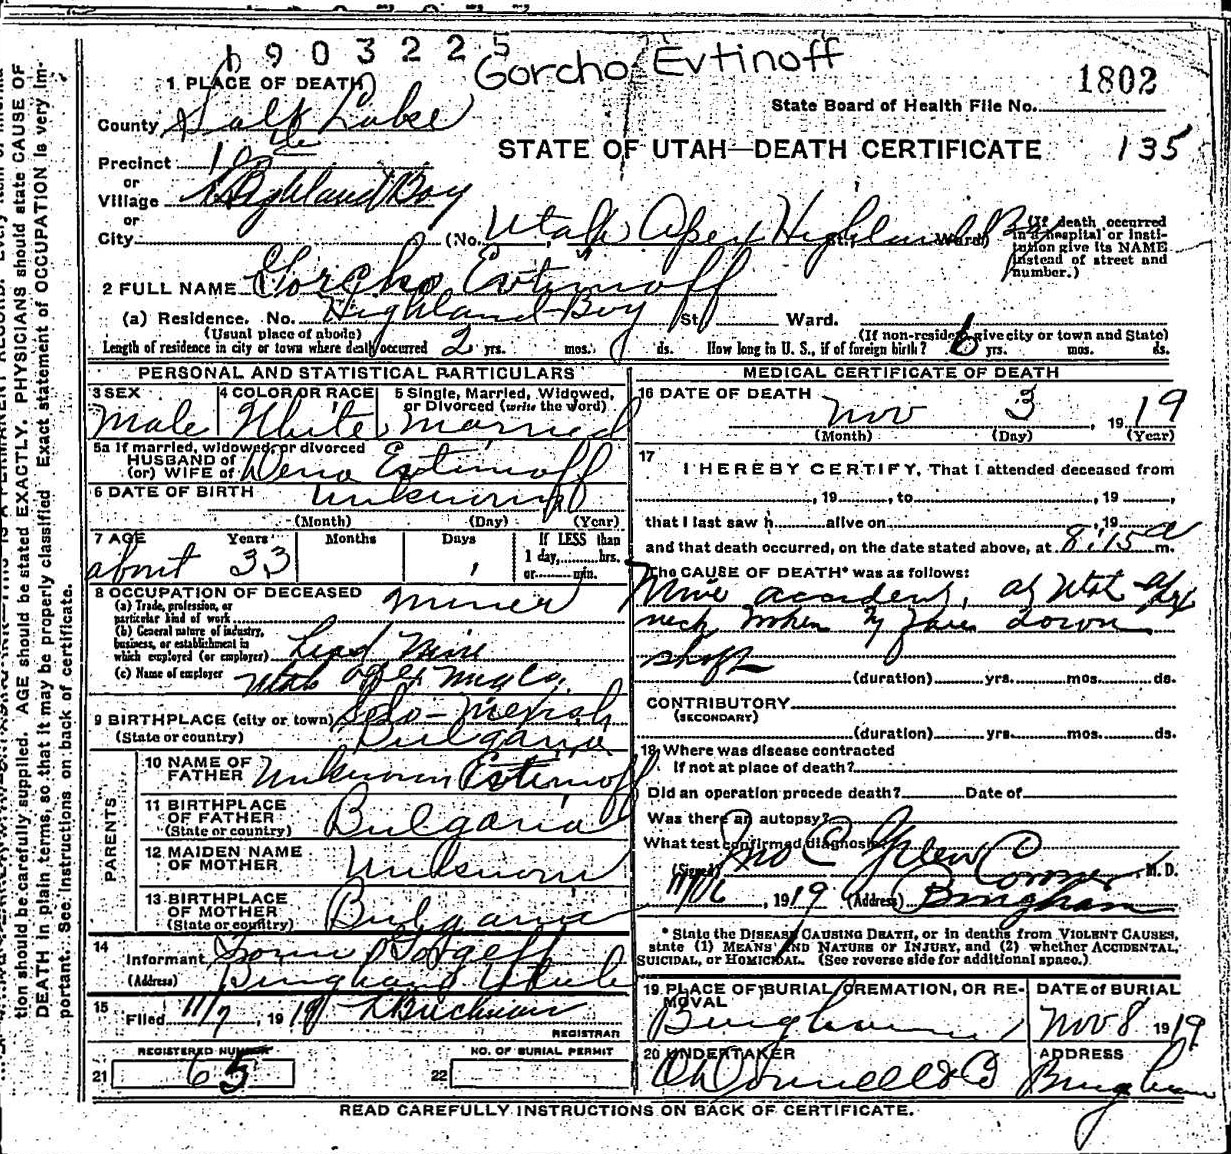 b 9 0 3 2 2 5
Gorcho Evtinoff
1802
1 PLACE OF DEATH
State Board of Health File No.
County Salt Lake
STATE OF UTAH—DEATH CERTIFICATE 135
Precinct
or
Village Highland Boy
or
City (No. Utah Apex Highland Boy St., Ward) (If death occurred in a hospital or institution give its NAME instead of street and number.)
2 FULL NAME Gorcho Evtinoff
(a) Residence. No. Highland Boy St. Ward.
(Usual place of abode) (If non-resident give city or town and State)
Length of residence in city or town where death occurred 2 yrs. mos. ds. How long in U. S., if of foreign birth? 6 yrs. mos. ds.
PERSONAL AND STATISTICAL PARTICULARS
3 SEX Male
4 COLOR OR RACE White
5 Single, Married, Widowed, or Divorced (write the word) Married
5a If married, widowed, or divorced
HUSBAND of
(or) WIFE of Evtinoff
6 DATE OF BIRTH Unknown
(Month) (Day) (Year)
7 AGE Years Months Days If LESS than 1 day, hrs. or min.
about 33
8 OCCUPATION OF DECEASED
(a) Trade, profession, or particular kind of work Miner
(b) General nature of industry, business, or establishment in which employed (or employer) Lead Mine
(c) Name of employer Utah Apex Mng Co.
9 BIRTHPLACE (city or town)
(State or country) Bulgaria
PARENTS
10 NAME OF FATHER Unknown Evtinoff
11 BIRTHPLACE OF FATHER (State or country) Bulgaria
12 MAIDEN NAME OF MOTHER Unknown
13 BIRTHPLACE OF MOTHER (State or country) Bulgaria
14
Informant
(Address) Bingham Utah
15
Filed 11/7, 1919
REGISTRAR
REGISTERED NUMBER
21 65
NO. OF BURIAL PERMIT
22
MEDICAL CERTIFICATE OF DEATH
16 DATE OF DEATH Nov 3, 1919
(Month) (Day) (Year)
17
I HEREBY CERTIFY, That I attended deceased from
, 19 , to , 19 ,
that I last saw h alive on , 19
and that death occurred, on the date stated above, at 8:15 a m.
The CAUSE OF DEATH* was as follows:
Mine accident, at Utah Apex
neck broken by down
(duration) yrs. mos. ds.
CONTRIBUTORY
(SECONDARY)
(duration) yrs. mos. ds.
18 Where was disease contracted
If not at place of death?
Did an operation precede death? Date of
Was there an autopsy?
What test confirmed diagnosis?
(Signed) Jno C Green Coroner M. D.
11/6, 1919 (Address) Bingham
* State the DISEASE CAUSING DEATH, or in deaths from VIOLENT CAUSES, state (1) MEANS AND NATURE OF INJURY, and (2) whether ACCIDENTAL, SUICIDAL, or HOMICIDAL. (See reverse side for additional space.)
19 PLACE OF BURIAL, CREMATION, OR REMOVAL Bingham
DATE of BURIAL Nov 8 1919
20 UNDERTAKER O'Donnell & Co
ADDRESS Bingham
READ CAREFULLY INSTRUCTIONS ON BACK OF CERTIFICATE.
tion should be carefully supplied. AGE should be stated EXACTLY. PHYSICIANS should state CAUSE OF
DEATH in plain terms, so that it may be properly classified. Exact statement of OCCUPATION is very im-
portant. See instructions on back of certificate.